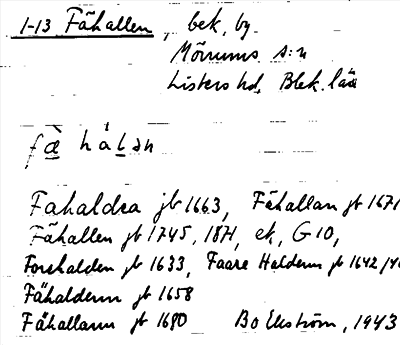 1-13 Fähallen, bek. by.
Mörrums s:n
Listers hd, Blek. län
fæ̀ hálən
Fahaldra jb 1663, Fähallan jb 1671
Fähallen jb 1745, 1871, ek, G10,
Forehalden jb 1633, Faare Haldenn jb 1642/
Fähaldenn jb 1658
Fähallann jb 1680 Bo Ekström, 1943